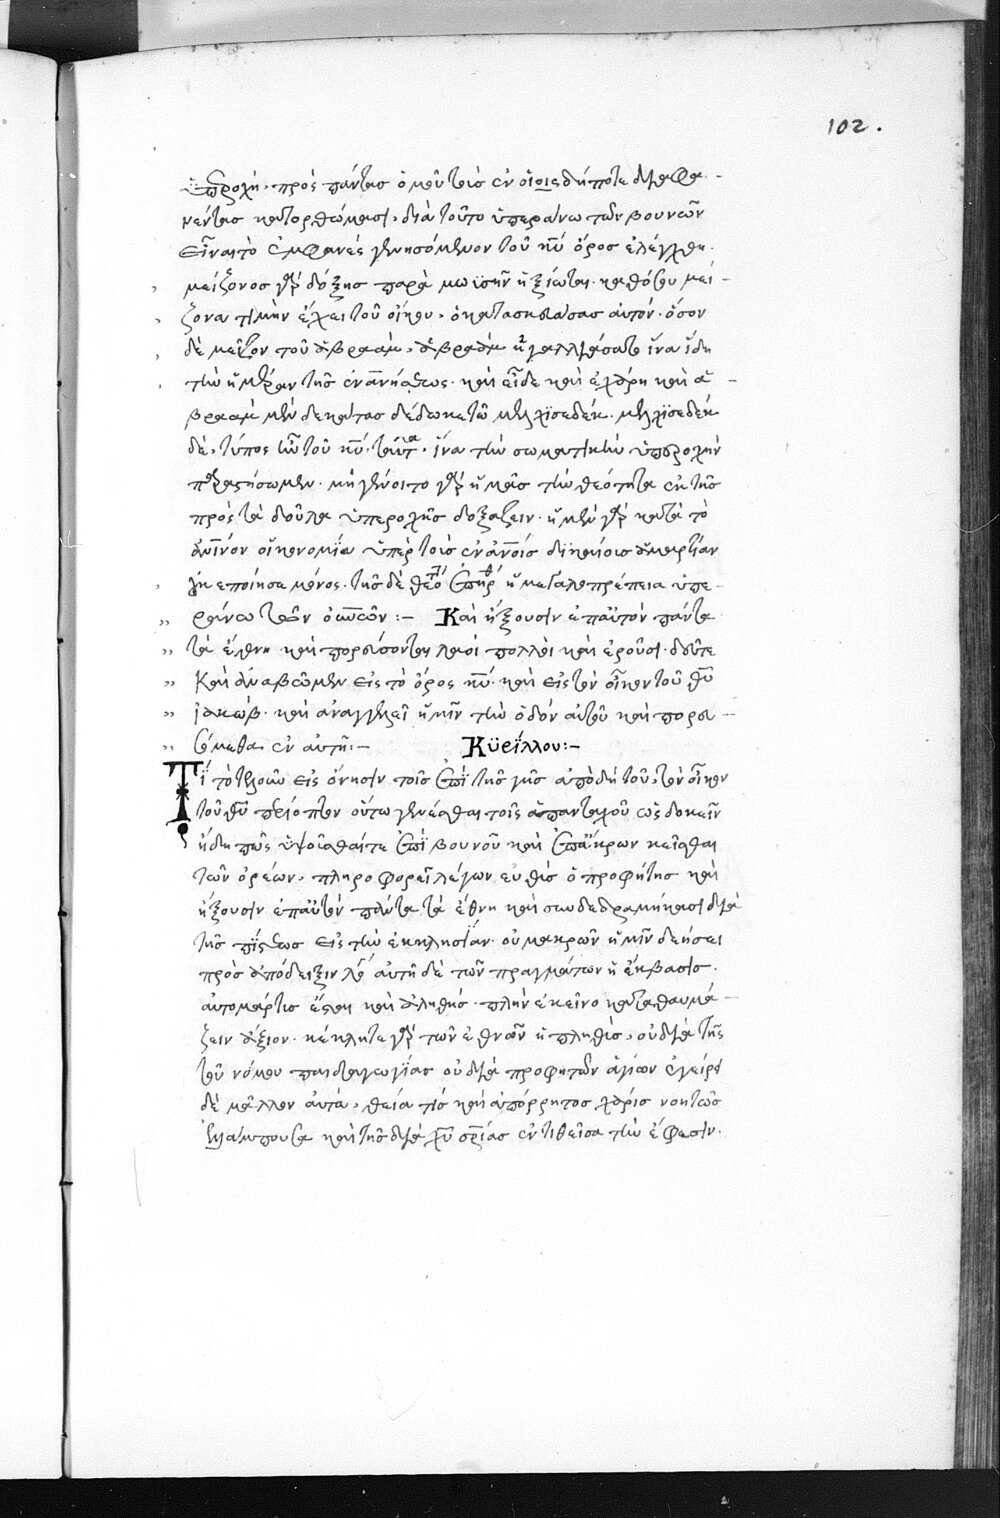 102.
ὑπεροχὴ, πρὸς πάντας ὁμοῦ τοὺς ἐν οἵοις δήποτε διαφα
νέντας κατορθώμασι, διὰ τοῦτο ὑπεράνω τῶν βουνῶν
εἶναι τὸ ἐμφανὲς γενησόμενον τοῦ κυ ὄρος ἐλέγχθη.
μείζονος γὰρ δόξης παρὰ μωϋσὴν ἠξίωται. καθόσον μεί
ζονα τιμὴν ἔχει τοῦ οἴκου, ὁ κατασκευάσας αὐτόν. ὅσον
δὲ μεῖζον τοῦ ἀβραάμ, ἀβραὰμ ἠγαλλιάσατο ἵνα ἴδη
τὴν ἡμέραν τῆς ἐναν. καὶ εἶδε καὶ ἐχάρη καὶ ἀ
βραὰμ μὲν δεκάτας δέδωκε τῶ μελχϊσεδέκ. μελχϊσεδὲκ
δὲ, τύπος ἦν τοῦ κυ. ταῦτα, ἵνα τὴν σωματικὴν ὑπεροχὴν
παραστήσωμεν. μὴ γένοιτο γὰρ ἡμᾶς τὴν θεότητα ἐκ τῆς
πρὸς τὰ δοῦλα ὑπεροχῆς δοξάζειν. ἡ μὲν γὰρ κατὰ τὸ
ἀνινον οἰκονομία ὑπὲρ τοὺς ἐν ἀνοις δικαίους ἁμαρτίαν
οὐκ ἐποίησε μόνος. τῆς δὲ ἡ μεγαλοπρέπεια ὑπε
ράνω τῶν οὐνῶν :— Καὶ ἥξουσιν ἐπ αὐτὸν πάντα
τὰ ἔθνη καὶ πορεύσονται λαοὶ πολλοὶ καὶ ἐροῦσι. δεῦτε
Καὶ ἀναβῶμεν εἰς τὸ ὄρος κυ. καὶ εἰς τὸν οἶκον τοῦ θυ
ἰακώβ. καὶ ἀναγγελεῖ ἡμῖν τὴν ὁδὸν αὐτοῦ καὶ πορευ
σόμεθα ἐν αὐτῆ:— Κϋρΐλλου:—
Τί τὸ τελοῦν εἰς ὄνησιν τοῖς ἐπὶ τῆς γῆς ἀπὸ δὴ τοῦ, τὸν οἶκον
τοῦ θυ περίοπτον οὕτω γενέσθαι τοῖς ἁπανταχοῦ ὡς δοκεῖν
ἤδη πῶς ὑψοῦσθαί τε ἐπὶ βουνοῦ καὶ ἐπ ἄκρων κεῖσθαι
τῶν ὀρέων, πληροφορεῖ λέγων εὐθὺς ὁ προφήτης καὶ
ἥξουσιν ἐπ αὐτὸν πάντα τὰ ἔθνη καὶ συνδεδραμήκασι διὰ
τῆς πίστεως εἰς τὴν ἐκκλησίαν. οὐ μακρῶν ἡμῖν δεήσει
πρὸς ἀπόδειξιν λό αὐτὴ δὲ τῶν πραγμάτων ἡ ἔκβασις.
αὐτόμαρτυς ἔσται καὶ ἀληθής. πλὴν ἐκεῖνο καταθαυμά
ζειν ἄξιον. κέκληται γὰρ τῶν ἐθνῶν ἡ πληθὺς, οὐ διὰ τῆς
τοῦ νόμου παιδαγωγίας οὐ διὰ προφητῶν ἁγίων ἐγείρει
δὲ μᾶλλον αὐτά, θεία τις καὶ ἀπόρρητος χάρις νοητῶς
ἐλλάμπουσα καὶ τῆς διὰ χυ σριας ἐντιθεῖσα τὴν ἔφεσιν.